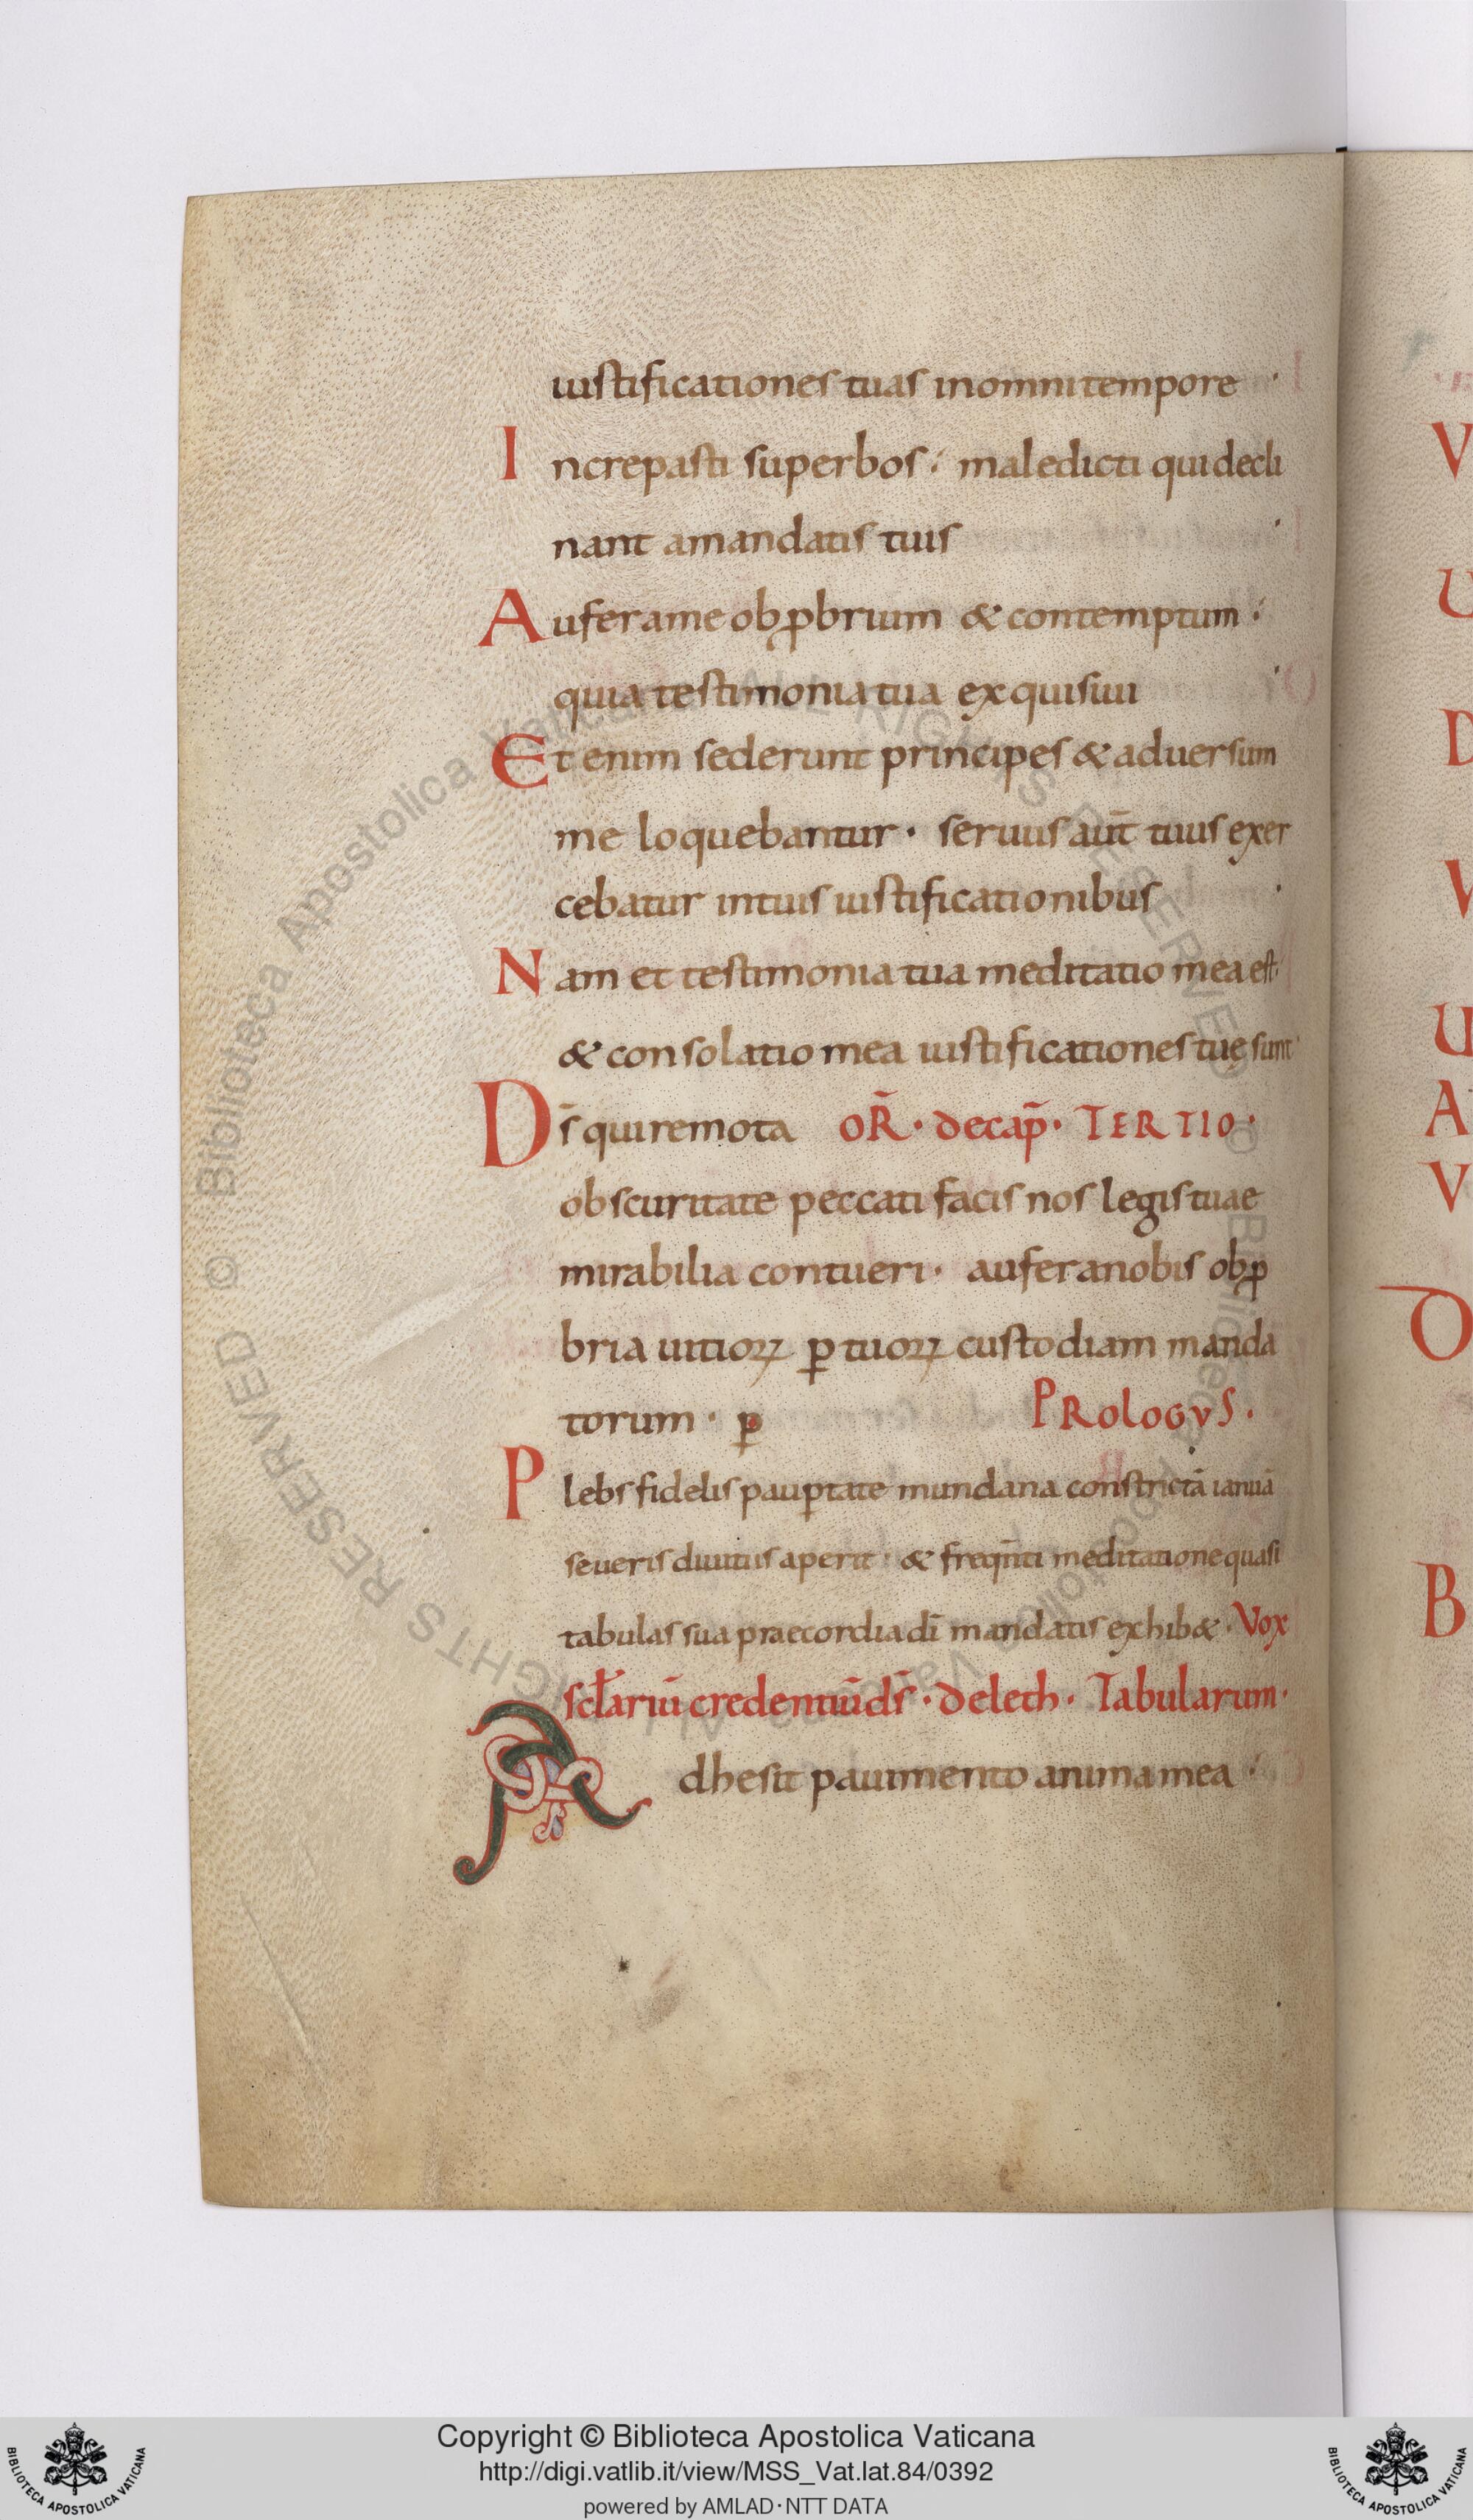 iustificationes tuas inomnitempore ·
Increpasti superbos · maledicti quidecli
nant amandatis tuis ·
Auferame obꝓbrium & contemptum ·
quia testimonia tua exquisiui ·
Etenim sederunt principes & aduersum
me loquebantur · seruus aut̄ tuus exer
cebatur intuis iustificationibus ·
Nam et testimonia tua meditatio mea est ·
& consolatio mea iustificationes tuę sunt
Ds̄ quiremota OR̄ · decap̄ · TERTIO ·
obscuritate peccati facis nos legis tuae
mirabilia contueri · auferanobis obꝓ
bria uitioꝝ ꝑ tuoꝝ custodiam manda
torum · ꝑ PROLOGVS ·
Plebs fidelis pauꝑtate mundana constrictā ianuā
seueris diuitiis aperit · & freqn̄ti meditatione quasi
tabulas sua praecordia dī mandatis exhib& · Vox
scl̄ariū credentiū ds̄ · deleth · Tabularum ·
Adhesit pauimento anima mea ·
Copyright © Biblioteca Apostolica Vaticana
http://digi.vatlib.it/view/MSS_Vat.lat.84/0392
powered by AMLAD·NTT DATA